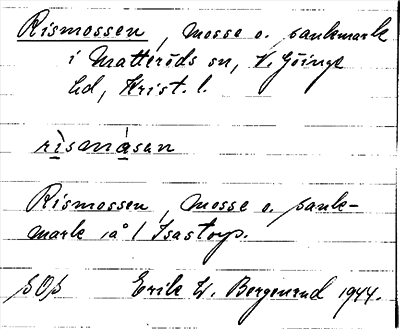 Rismossen, mosse o. sankmark
i Matteröds sn, V. Göinge
hd, Krist. l.
rismåsan
Rismossen, mosse o. sank-
mark på 1 Isastorp.
Erik W. Bergenrud 1944.